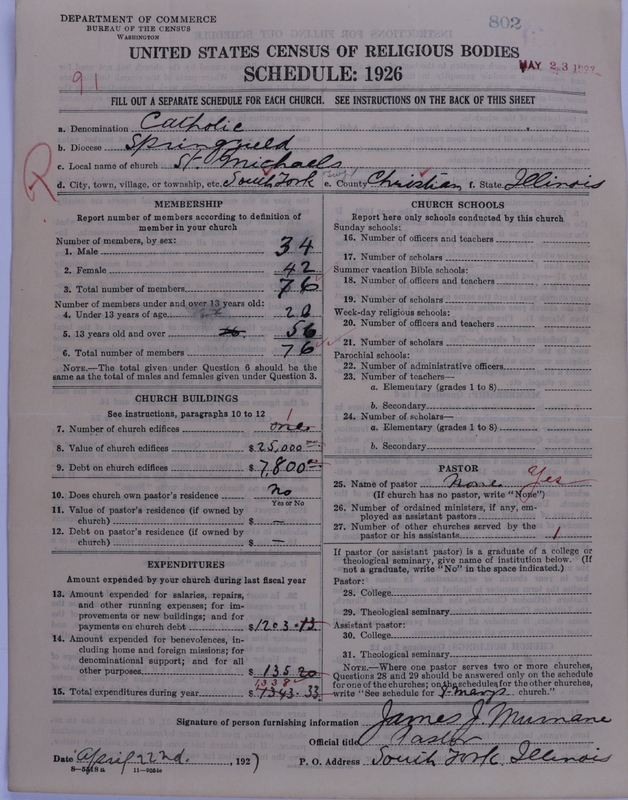 DEPARTMENT OF COMMERCE
BUREAU OF THE CENSUS
WASHINGTON
802
UNITED STATES CENSUS OF RELIGIOUS BODIES
SCHEDULE: 1926
MAY 23 1927
91
FILL OUT A SEPARATE SCHEDULE FOR EACH CHURCH. SEE INSTRUCTIONS ON THE BACK OF THIS SHEET
a. Denomination Catholic
b. Diocese Springfield
c. Local name of church St. Michaels
R
d. City, town, village, or township, etc. South Fork e. County Christian f. State Illinois
MEMBERSHIP
Report number of members according to definition of member in your church
Number of members, by sex:
1. Male 34
2. Female 42
3. Total number of members 76
Number of members under and over 13 years old:
4. Under 13 years of age 20
5. 13 years old and over 56
6. Total number of members 76
NOTE.—The total given under Question 6 should be
same as the total of males and females given under Question 3.
CHURCH BUILDINGS
See instructions, paragraphs 10 to 12
7. Number of church edifices one 1
8. Value of church edifices $ 25,000
9. Debt on church edifices $ 7,800
10. Does church own pastor's residence No
Yes or No
11. Value of pastor's residence (if owned by
church) $ —
12. Debt on pastor's residence (if owned by
church) $ —
EXPENDITURES
Amount expended by your church during last fiscal year
13. Amount expended for salaries, repairs,
and other running expenses; for im-
provements or new buildings; and for
payments on church debt $ 1203.13
14. Amount expended for benevolences, in-
cluding home and foreign missions; for
denominational support; and for all
other purposes $ 135 20
1338
15. Total expenditures during year $ 1343.33
CHURCH SCHOOLS
Report here only schools conducted by this church
Sunday schools:
16. Number of officers and teachers
17. Number of scholars
Summer vacation Bible schools:
18. Number of officers and teachers
19. Number of scholars
Week-day religious schools:
20. Number of officers and teachers
21. Number of scholars
Parochial schools:
22. Number of administrative officers
23. Number of teachers—
a. Elementary (grades 1 to 8)
b. Secondary
24. Number of scholars—
a. Elementary (grades 1 to 8)
b. Secondary
PASTOR
25. Name of pastor None Yes
(If church has no pastor, write "None")
26. Number of ordained ministers, if any, em-
ployed as assistant pastors
27. Number of other churches served by the
pastor or his assistants 1
If pastor (or assistant pastor) is a graduate of a college or
theological seminary, give name of institution below. (If
not a graduate, write "No" in the space indicated.)
Pastor:
28. College
29. Theological seminary
Assistant pastor:
30. College
31. Theological seminary
NOTE.—Where one pastor serves two or more churches,
Questions 28 and 29 should be answered only on the schedule
for one of the churches; on the schedules for the other churches,
write "See schedule for St Marys church."
Signature of person furnishing information James J. Murnane
Official title Pastor
Date April 22nd, 1927 P. O. Address South Fork, Illinois
8—5518 a 11—9551c